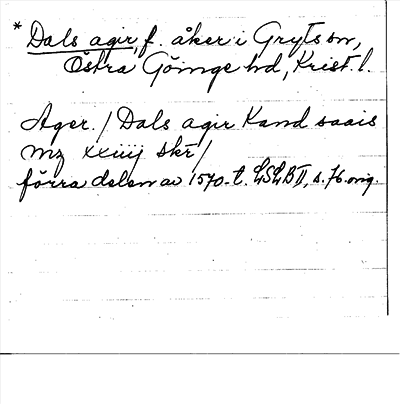 * Dals agir, f. åker i Gryts sn,
Östra Göinge hd, Krist. l.
Ager. / Dals agir Kand saais
mz xxiiij skr /
förra delen av 1570-t. LSLB II, s. 76 orig.